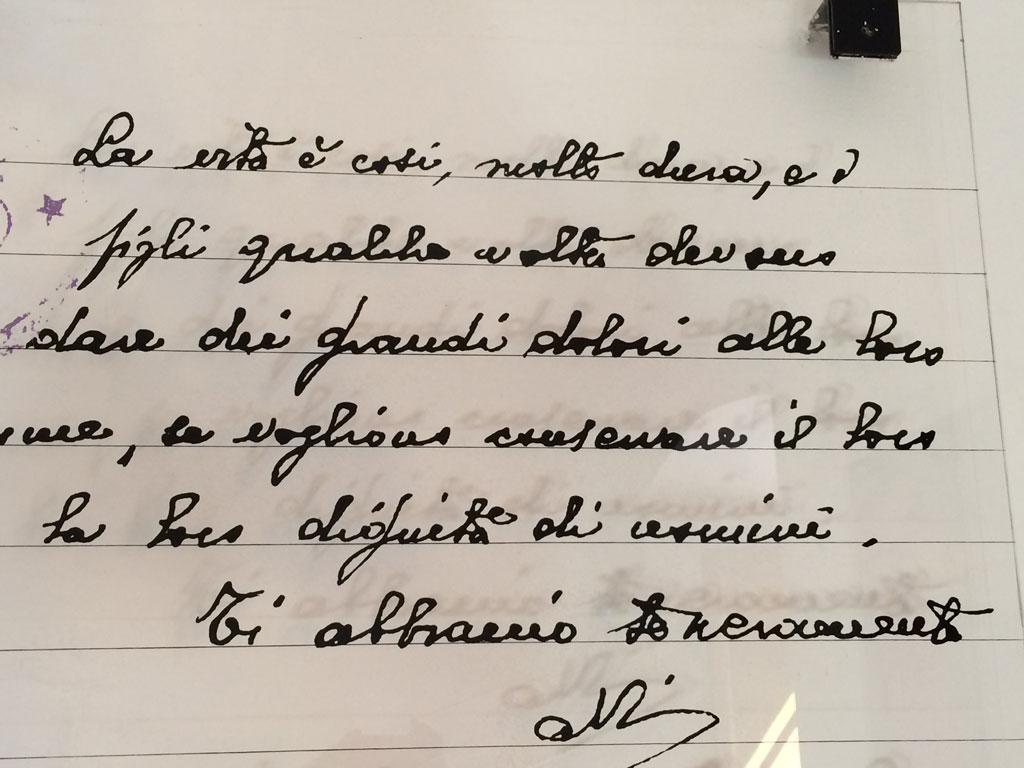 La vita è così, molto dura, e i
figli qualche volta devono
dare dei grandi dolori alle loro
mme, se vogliono conservare il loro
la loro dignità di uomini.
Ti abbraccio teneramente